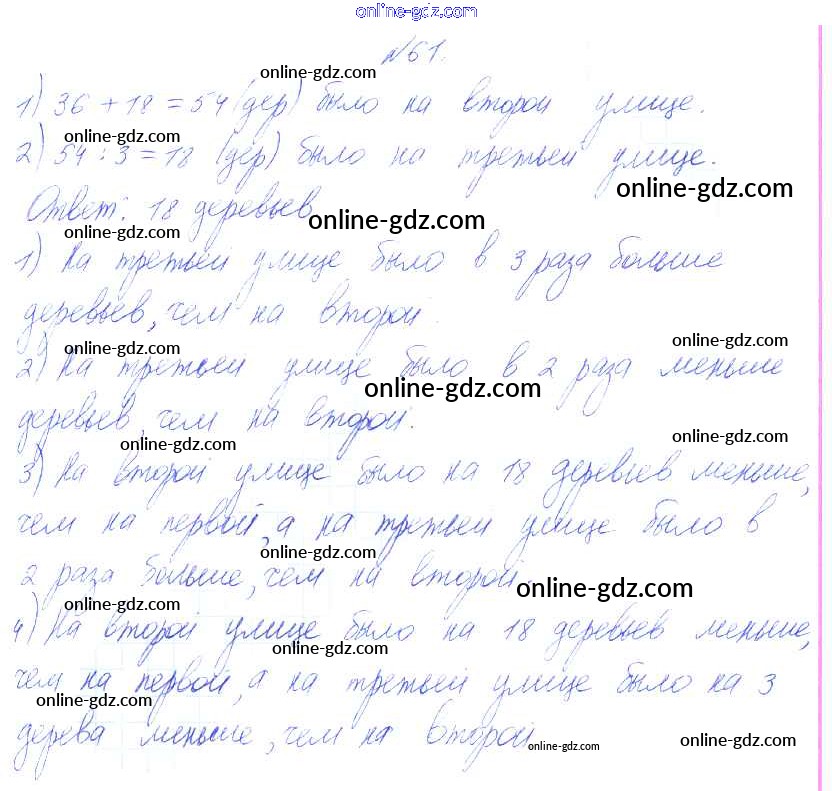 online-gdz.com
№61.
online-gdz.com
1) 36 + 18 = 54 (дер) было на второй улице.
online-gdz.com
2) 54 : 3 = 18 (дер) было на третьей улице.
online-gdz.com
Ответ: 18 деревьев
online-gdz.com
online-gdz.com
1) На третьей улице было в 3 раза больше
деревьев, чем на второй.
online-gdz.com
online-gdz.com
2) На третьей улице было в 2 раза меньше
online-gdz.com
деревьев, чем на второй.
online-gdz.com
online-gdz.com
3) На второй улице было на 18 деревьев меньше,
чем на первой, а на третьей улице было в
online-gdz.com
2 раза больше, чем на второй.
online-gdz.com
online-gdz.com
4) На второй улице было на 18 деревьев меньше,
online-gdz.com
чем на первой, а на третьей улице было на 3
online-gdz.com
дерева меньше, чем на второй.
online-gdz.com
online-gdz.com